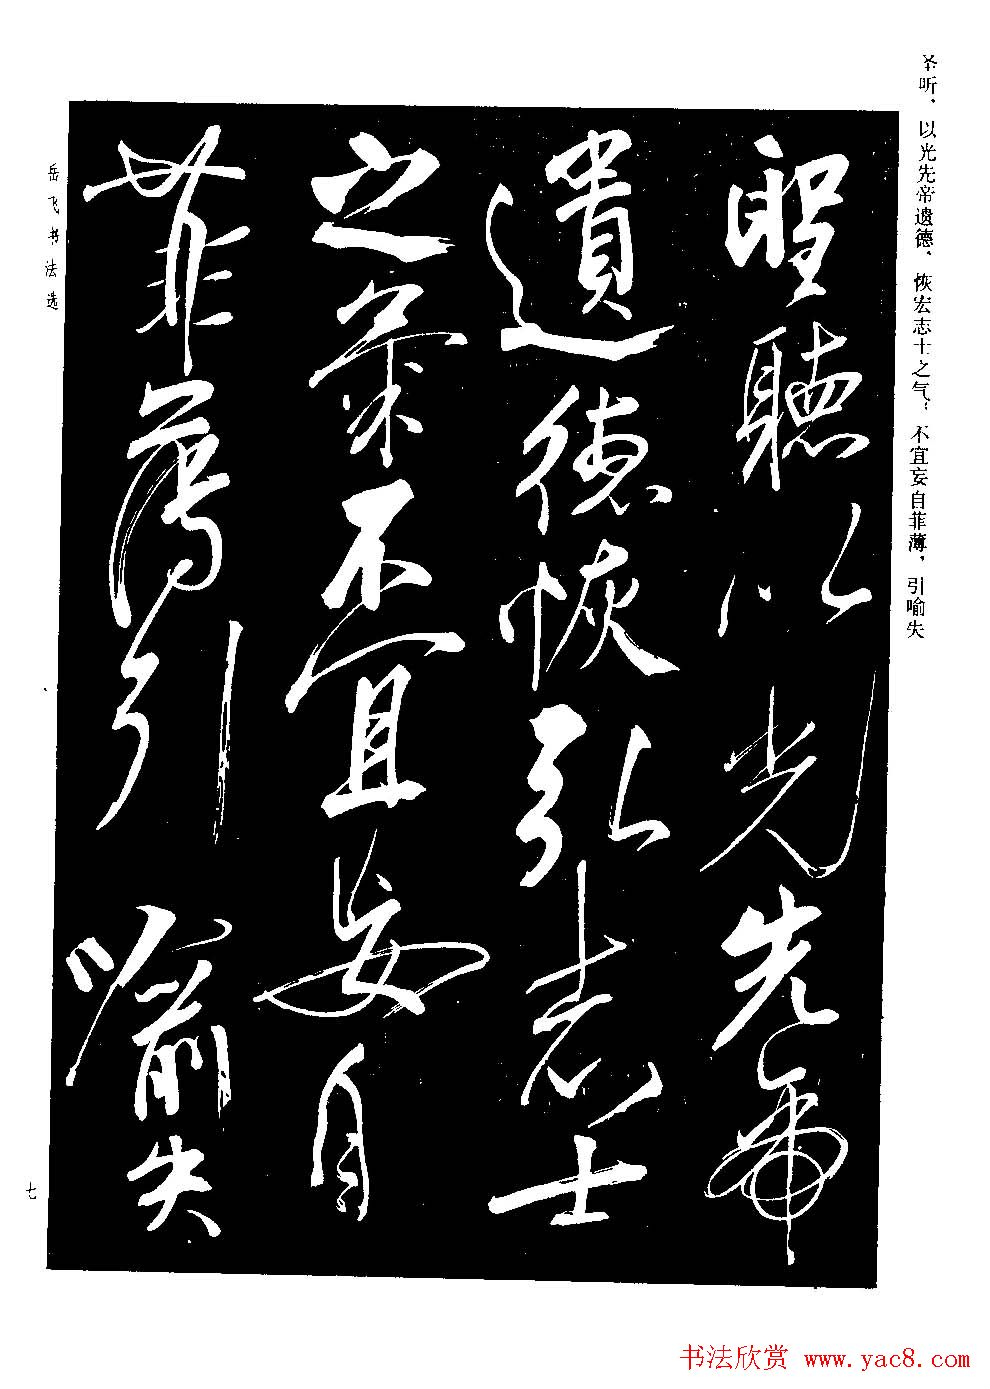 圣听，以光先帝遗德，恢宏志士之气；不宜妄自菲薄，引喻失
聖聽以光先帝
遺德恢弘志士
之氣不宜妄自
菲薄引喻失
岳飞书法选
七
书法欣赏 www.yac8.com